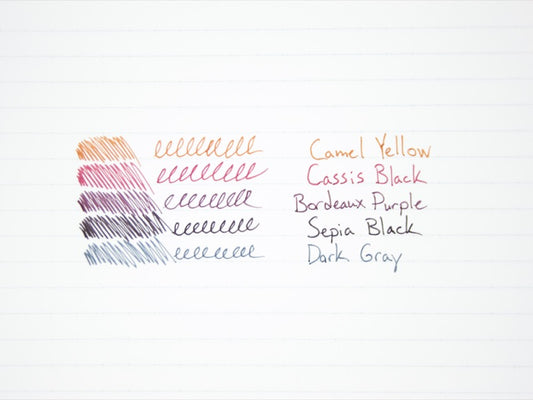 Camel Yellow
Cassis Black
Bordeaux Purple
Sepia Black
Dark Gray